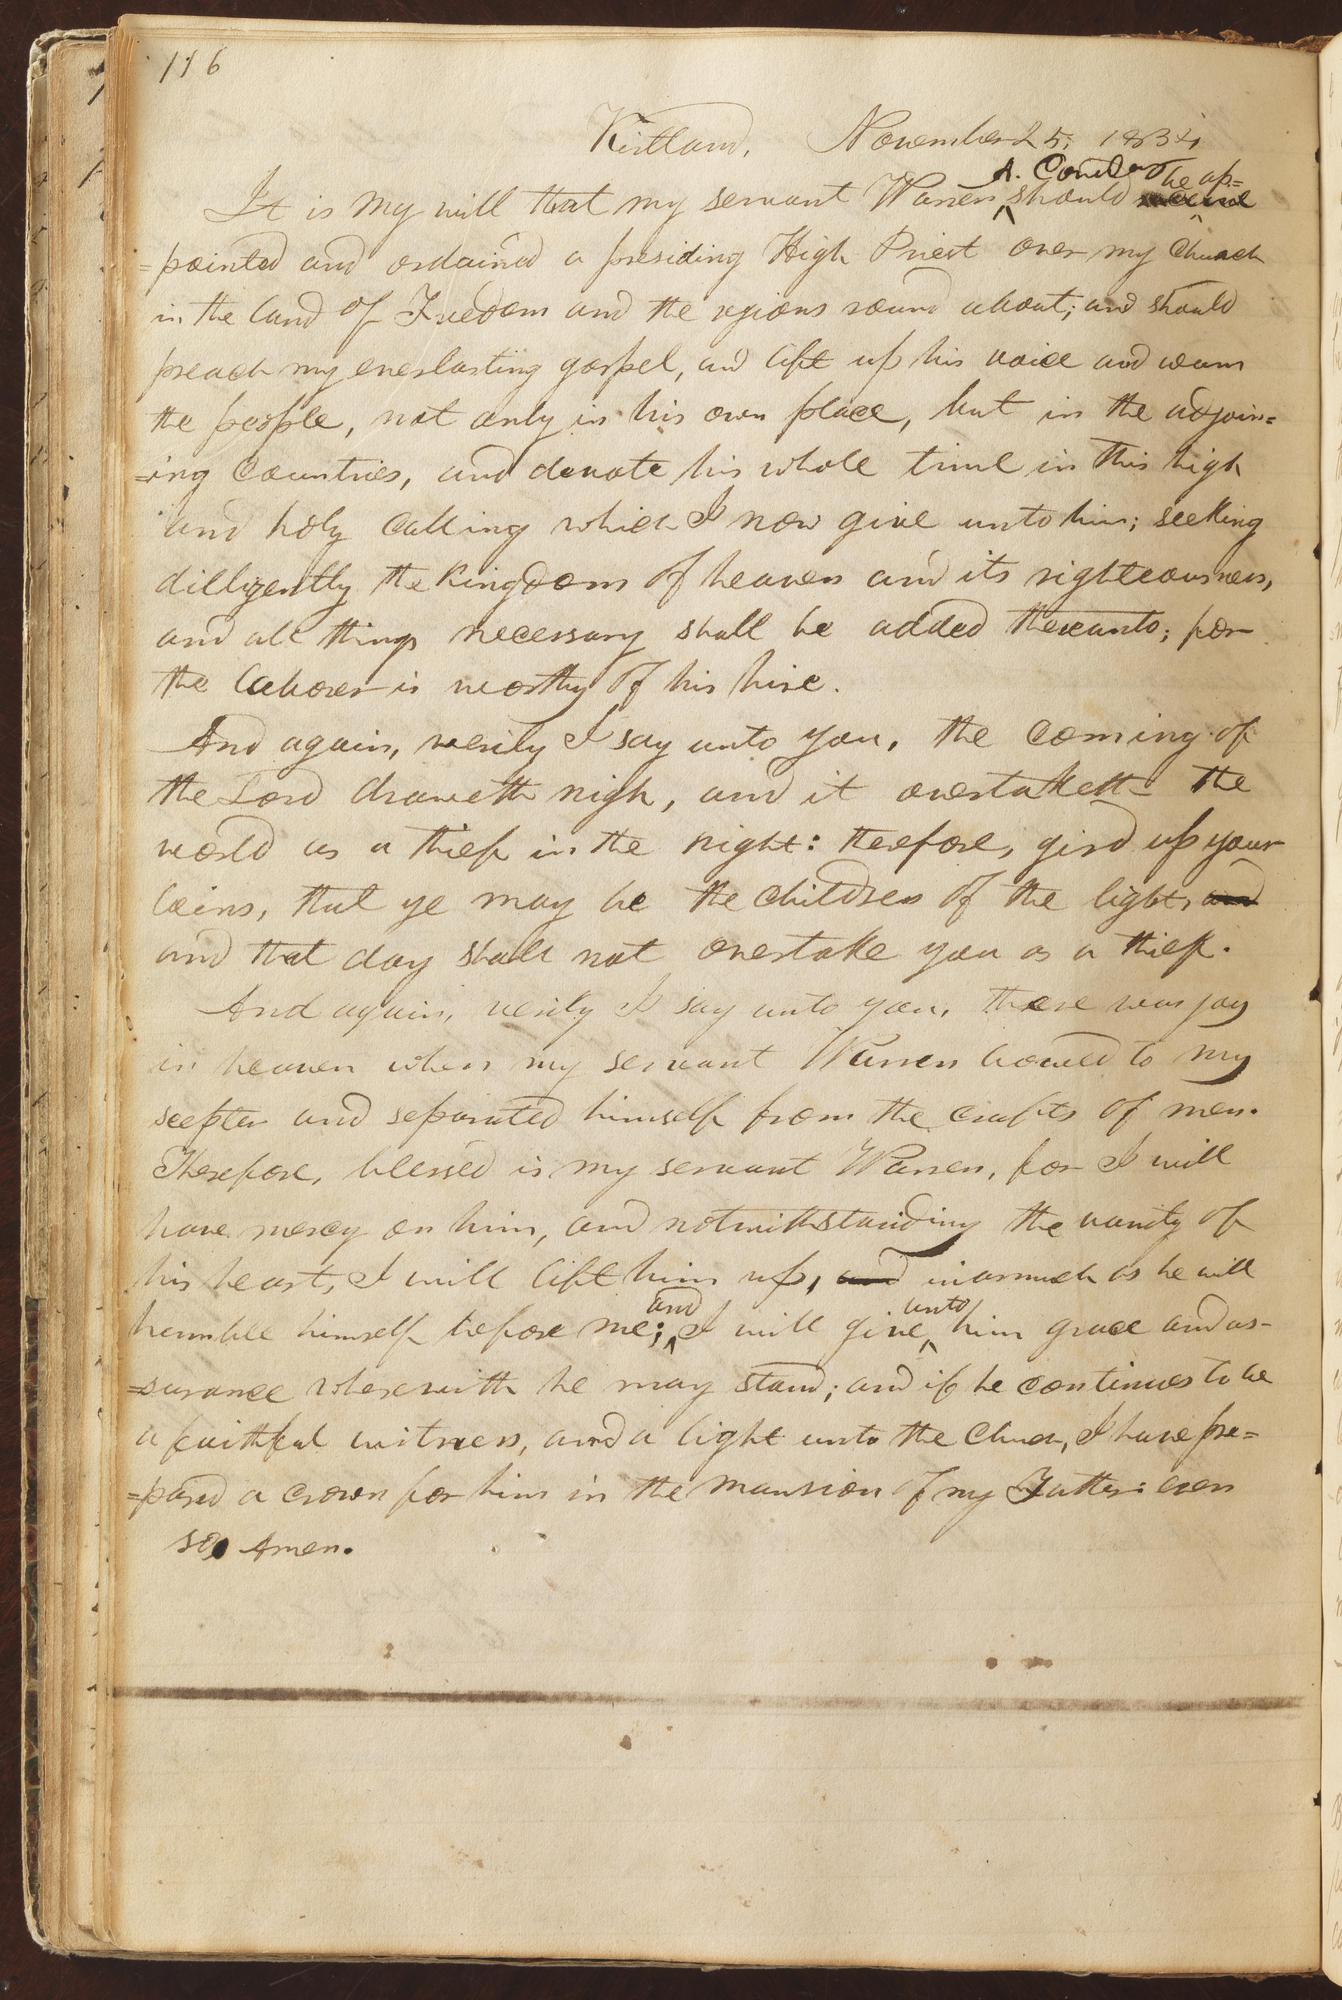 116
Kirtland, November 25, 1834,
A. Cowdery be ap=
It is my will that my servant Warren should
=pointed and ordained a presiding High Priest over my Church
in the land of Freedom and the regions round about; and should
preach my everlasting gospel, and lift up his voice and warn
the people, not only in his own place, but in the adjoin=
=ing countries, and devote his whole time in this high
and holy calling which I now give unto him; seeking
dilligently the kingdom of heaven and its righteousness,
and all things necessary shall be added thereunto; for
the laborer is worthy of his hire.
And again, verily I say unto you, the coming of
the Lord draweth nigh, and it overtaketh the
world as a thief in the night: therefore, gird up your
loins, that ye may be the children of the light, and
and that day shall not overtake you as a thief.
And again, verily I say unto you, there was joy
in heaven when my servant Warren bowed to my
scepter and separated himself from the crafts of men.
Therefore, blessed is my servant Warren, for I will
have mercy on him, and notwithstanding the vanity of
his heart, I will lift him up, and inasmuch as he will
and unto
humble himself before me; I will give him grace and as-
=surance wherewith he may stand; and if he continues to be
a faithful witness, and a light unto the Church, I have pre=
=pared a crown for him in the mansion of my Father: even
so Amen.